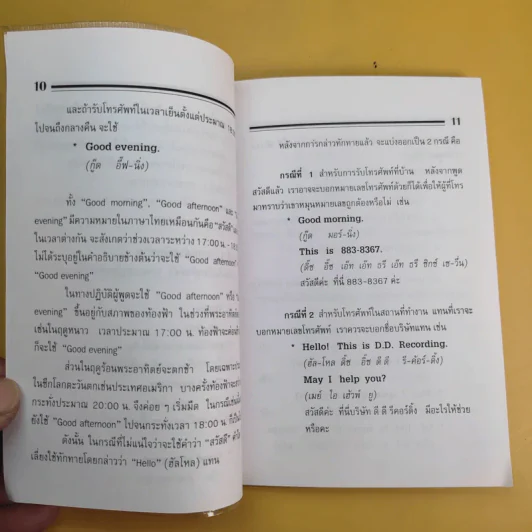 10
และถ้ารับโทรศัพท์ในเวลาเย็นตั้งแต่ประมาณ
ไปจนถึงกลางคืน จะใช้
* Good evening.
(กู๊ด อี๊ฟ-นิ่ง)
ทั้ง “Good morning”, “Good afternoon” และ
evening” มีความหมายในภาษาไทยเหมือนกันคือ “สวัสดี”
ในเวลาต่างกัน จะสังเกตว่าช่วงเวลาระหว่าง 17:00 น. -
ไม่ได้ระบุอยู่ในคำอธิบายข้างต้นว่าจะใช้ “Good afternoon”
“Good evening”
ในทางปฏิบัติผู้พูดจะใช้ “Good afternoon” หรือ
evening” ขึ้นอยู่กับสภาพของท้องฟ้า ในช่วงที่พระอาทิตย์
เช่นในฤดูหนาว เวลาประมาณ 17:00 น. ท้องฟ้าจะค่อน
ก็จะใช้ “Good evening”
ส่วนในฤดูร้อนพระอาทิตย์จะตกช้า โดยเฉพาะ
ในซีกโลกตะวันตกเช่นประเทศอเมริกา บางครั้งท้องฟ้าจะ
กระทั่งประมาณ 20:00 น. จึงค่อย ๆ เริ่มมืด ในกรณีเช่นนี้
ยังใช้ “Good afternoon” ไปจนกระทั่งเวลา 18:00 น.
ดังนั้น ในกรณีที่ไม่แน่ใจว่าจะใช้คำว่า “สวัสดี”
เลี่ยงใช้ทักทายโดยกล่าวว่า “Hello” (ฮัลโหล) แทน
11
หลังจากการกล่าวทักทายแล้ว จะแบ่งออกเป็น 2 กรณี คือ
กรณีที่ 1 สำหรับการรับโทรศัพท์ที่บ้าน หลังจากพูด
สวัสดีแล้ว เราอาจจะบอกหมายเลขโทรศัพท์ด้วยก็ได้เพื่อให้ผู้ที่โทร
มาทราบว่าเขาหมุนหมายเลขถูกต้องหรือไม่ เช่น
* Good morning.
(กู๊ด มอร์-นิ่ง)
This is 883-8367.
(ดิ้ซ อี๊ซ เอ๊ท เอ๊ท ธรี เอ๊ท ธรี ซิกซ์ เซ-วึ่น)
สวัสดีค่ะ ที่นี่ 883-8367 ค่ะ
กรณีที่ 2 สำหรับโทรศัพท์ในสถานที่ทำงาน แทนที่เราจะ
บอกหมายเลขโทรศัพท์ เราควรจะบอกชื่อบริษัทแทน เช่น
* Hello! This is D.D. Recording.
(ฮัล-โหล ดิ้ซ อี๊ซ ดี ดี รี-ค้อร์-ดิ้ง)
May I help you?
(เมย์ ไอ เฮ้วพ์ ยู)
สวัสดีค่ะ ที่นี่บริษัท ดี ดี รีคอร์ดิ้ง มีอะไรให้ช่วย
หรือคะ